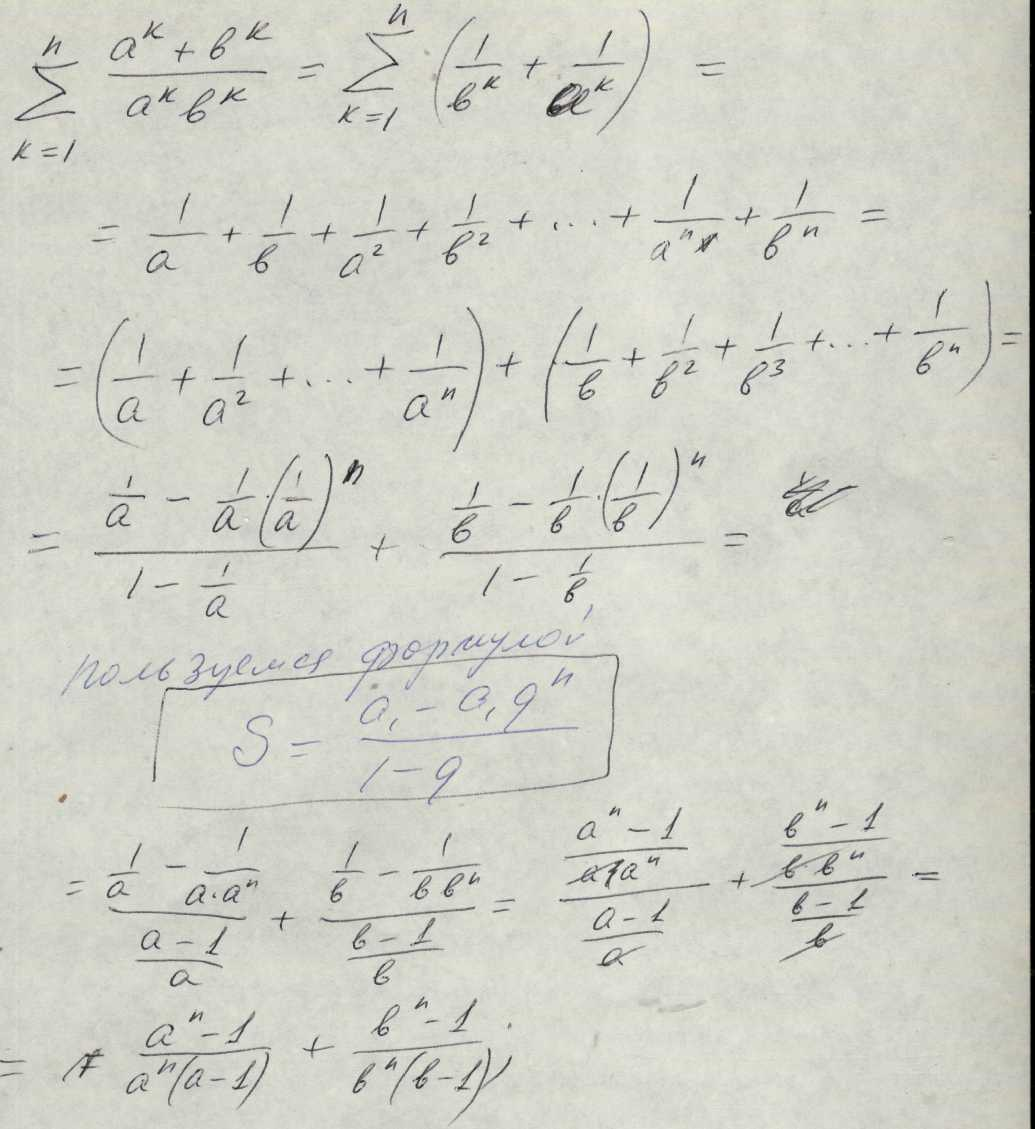 ∑_{k=1}^{n} (a^k + b^k)/(a^k b^k) = ∑_{k=1}^{n} (1/b^k + 1/a^k) =
= 1/a + 1/b + 1/a² + 1/b² + ... + 1/a^n + 1/b^n =
= (1/a + 1/a² + ... + 1/a^n) + (1/b + 1/b² + 1/b³ + ... + 1/b^n) =
= (1/a - 1/a·(1/a)^n)/(1 - 1/a) + (1/b - 1/b·(1/b)^n)/(1 - 1/b) =
пользуемся формулой
S = (a₁ - a₁q^n)/(1 - q)
= (1/a - 1/(a·a^n))/((a - 1)/a) + (1/b - 1/(b b^n))/((b - 1)/b) = ((a^n - 1)/(a·a^n))/((a - 1)/a) + ((b^n - 1)/(b·b^n))/((b - 1)/b) =
= (a^n - 1)/(a^n(a - 1)) + (b^n - 1)/(b^n(b - 1)).